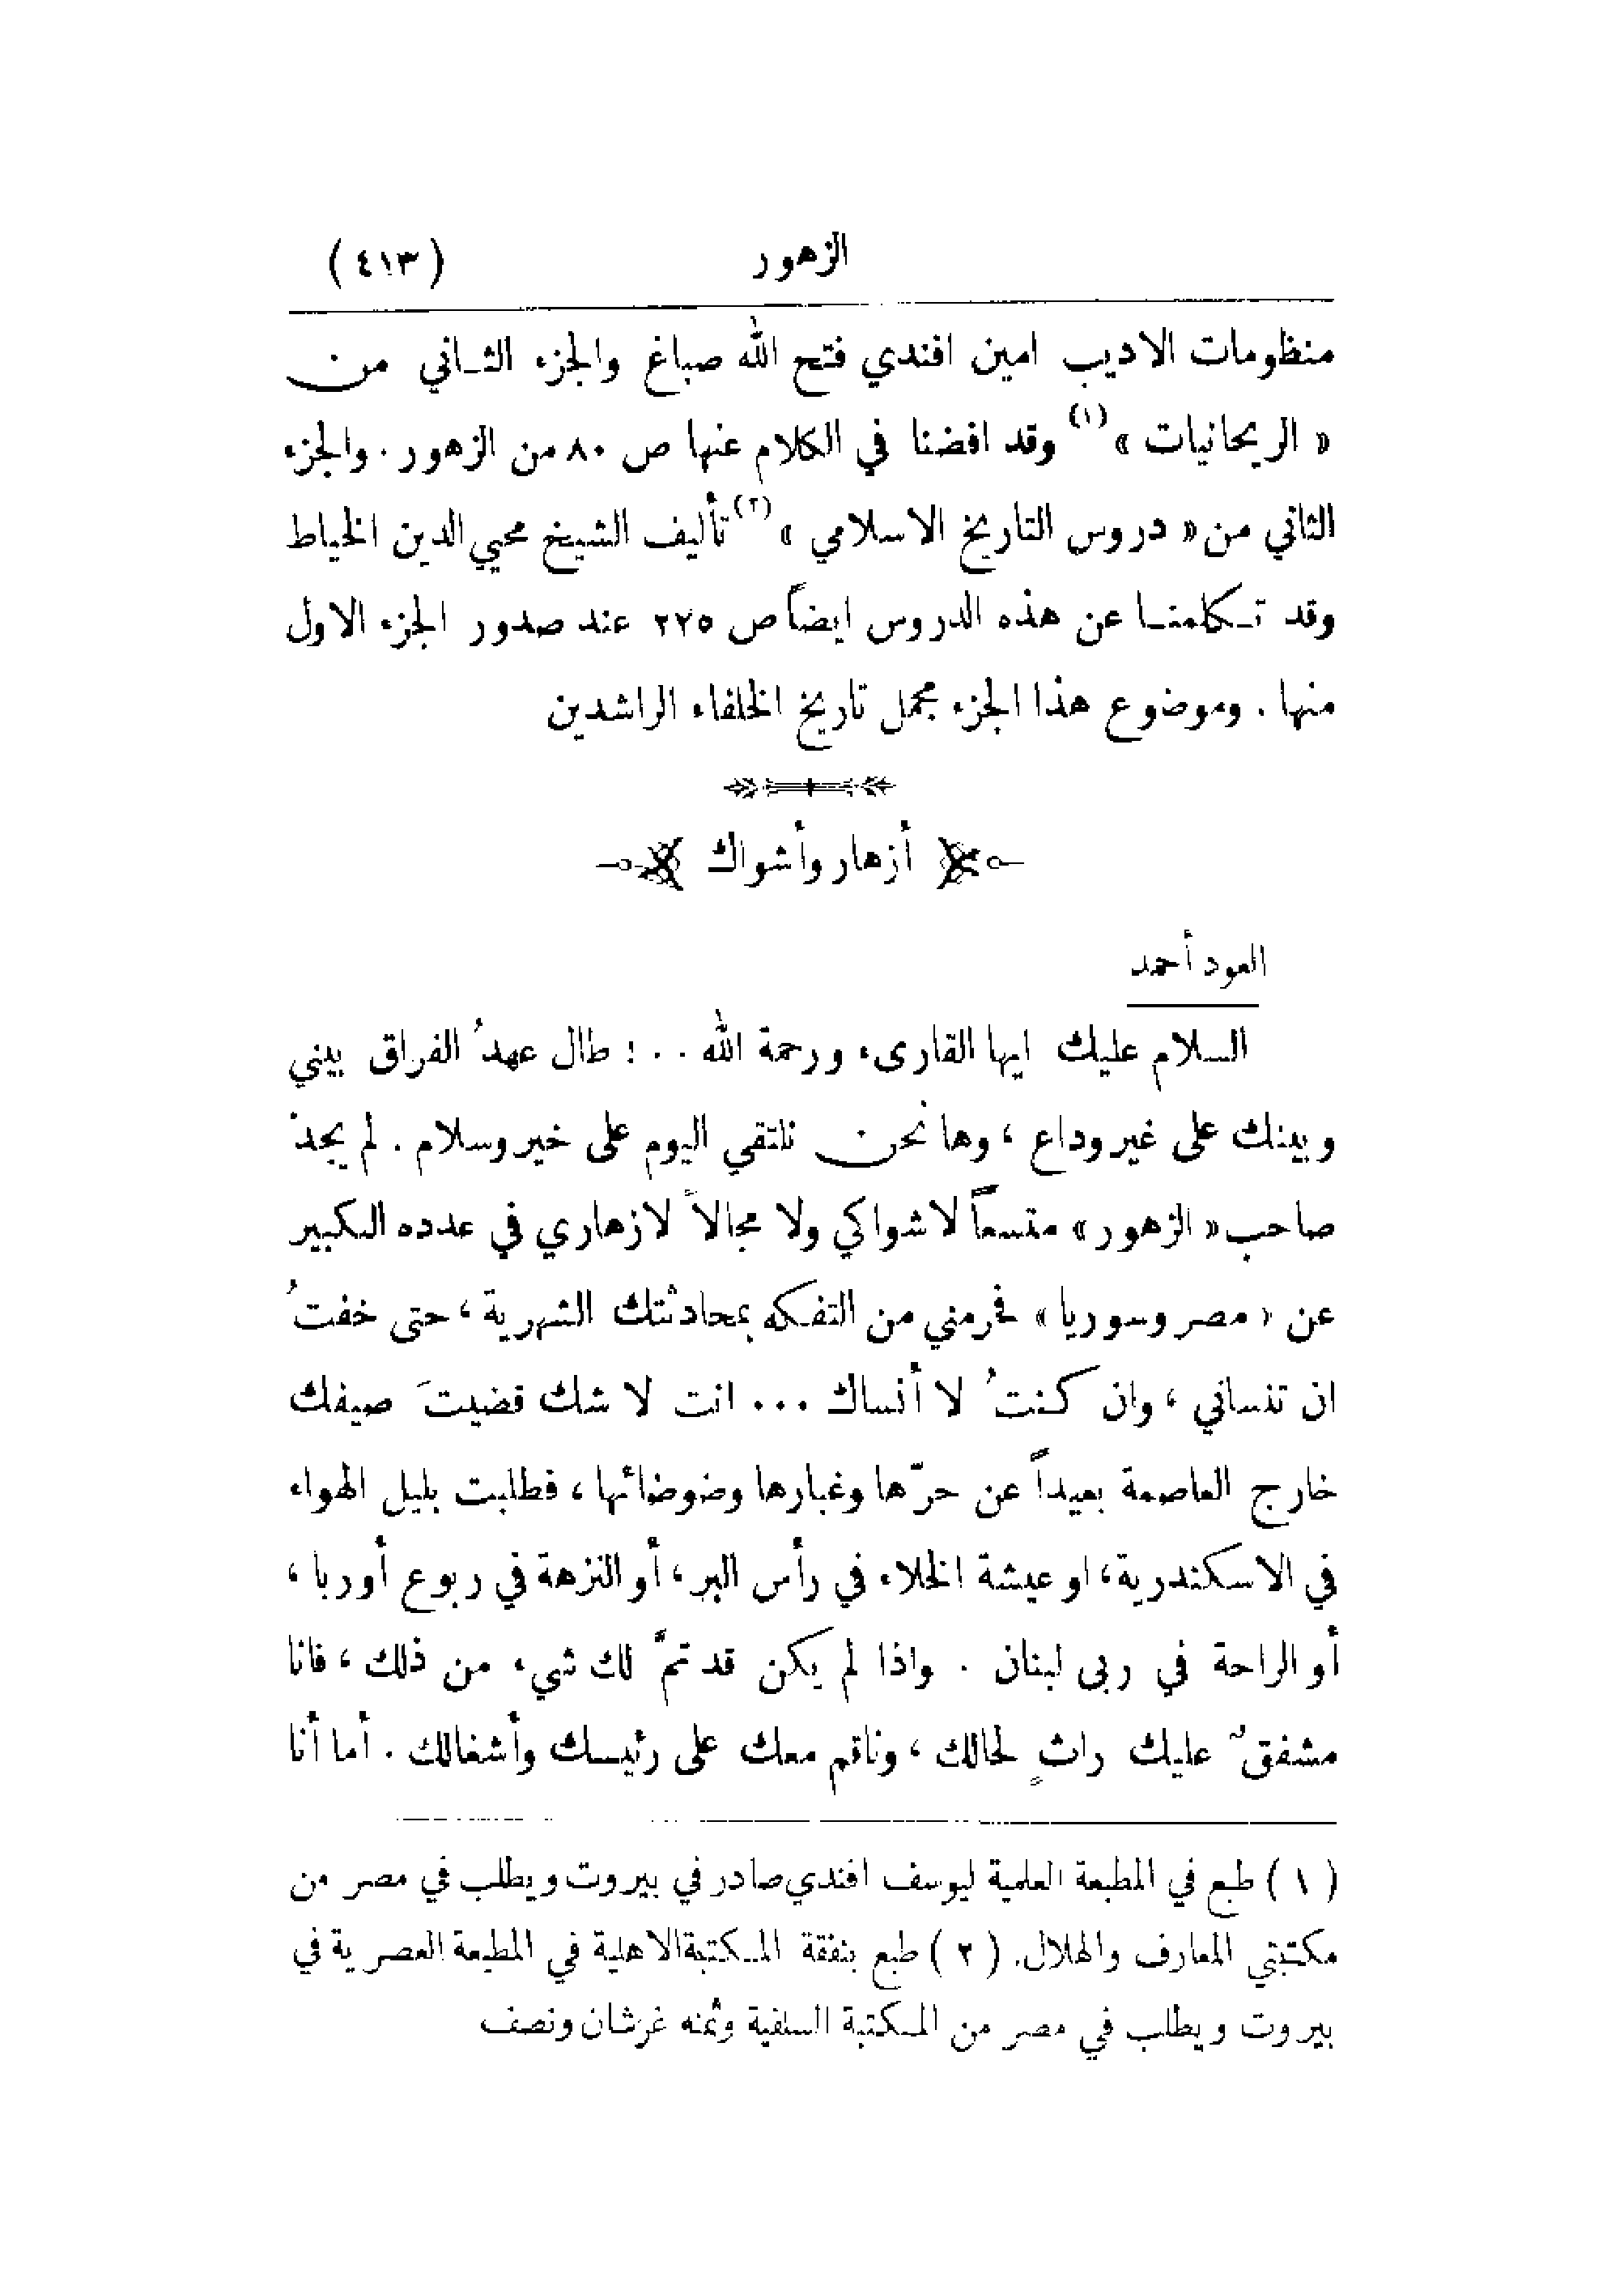 الزهور (٤١٣)
منظومات الاديب امين افندي فتح الله صباغ والجزء الثـاني من
« الريحانيات »(١) وقد افضنا في الكلام عنها ص ٨٠ من الزهور . والجزء
الثاني من « دروس التاريخ الاسلامي »(٢) تأليف الشيخ محيي الدين الخياط
وقد تـكلمنـا عن هذه الدروس ايضاً ص ٢٢٥ عند صدور الجزء الاول
منها . وموضوع هذا الجزء مجمل تاريخ الخلفاء الراشدين
أزهار وأشواك
العود أحمد
السـلام عليك ايها القارىء ورحمة الله . . ! طال عهدُ الفراق بيني
وبينك على غير وداع ، وها نحن نلتقي اليوم على خير وسلام . لم يجدْ
صاحب « الزهور » متسعاً لاشواكي ولا مجالاً لازهاري في عدده الكبير
عن « مصر وسوريا » فحرمني من التفكه بمحادثتك الشهرية ، حتى خفتُ
ان تنساني ، وان كـنتُ لا أنساك ... انت لا شك قضيتَ صيفك
خارج العاصمة بعيداً عن حرّها وغبارها وضوضائها ، فطلبت بليل الهواء
في الاسكندرية ، او عيشة الخلاء في رأس البر ، أو النزهة في ربوع أوربا ،
أو الراحة في ربى لبنان . واذا لم يكن قد تمَّ لك شيء من ذلك ، فانا
مشفقٌ عليك راثٍ لحالك ، وناقم معك على رئيسـك وأشغالك . أما أنا
( ١ ) طبع في المطبعة العلمية ليوسف افندي صادر في بيروت ويطلب في مصر من
مكتبتي المعارف والهلال. ( ٢ ) طبع بنفقة المـكتبة الاهلية في المطبعة العصرية في
بيروت ويطلب في مصر من المـكتبة السلفية وثمنه غرشان ونصف